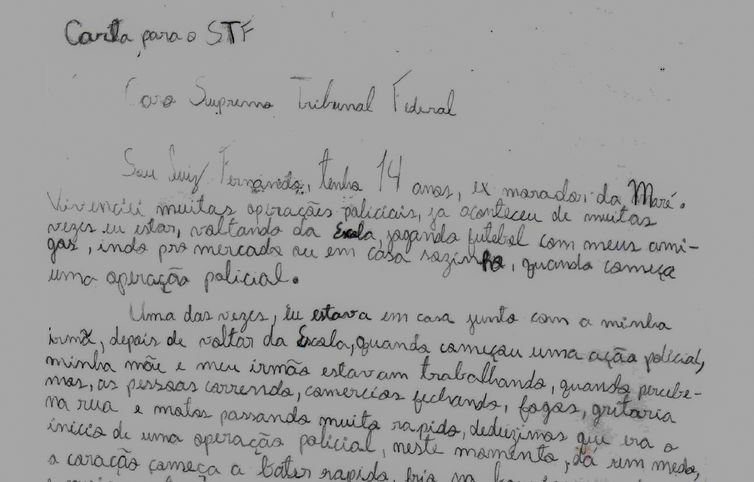 Carta para o STF
Caro Supremo Tribunal Federal
Sou Luiz Fernando, tenho 14 anos, ex morador da Maré.
Vivenciei muitas operações policiais, ja aconteceu de muitas
vezes eu estar, voltando da Escola, jogando futebol com meus ami-
gos, indo pro mercado ou em casa sozinho, quando começa
uma operação policial.
Uma das vezes, eu estava em casa junto com a minha
irmã, depois de voltar da Escola, quando começou uma ação policial,
minha mãe e meu irmão estavam trabalhando, quando percebe-
mos, as pessoas correndo, comercios fechando, fogos, gritaria
na rua e motos passando muito rapido, deduzimos que era o
inicio de uma operação policial, neste momento, da um medo,
o coração começa a bater rapido, frio na